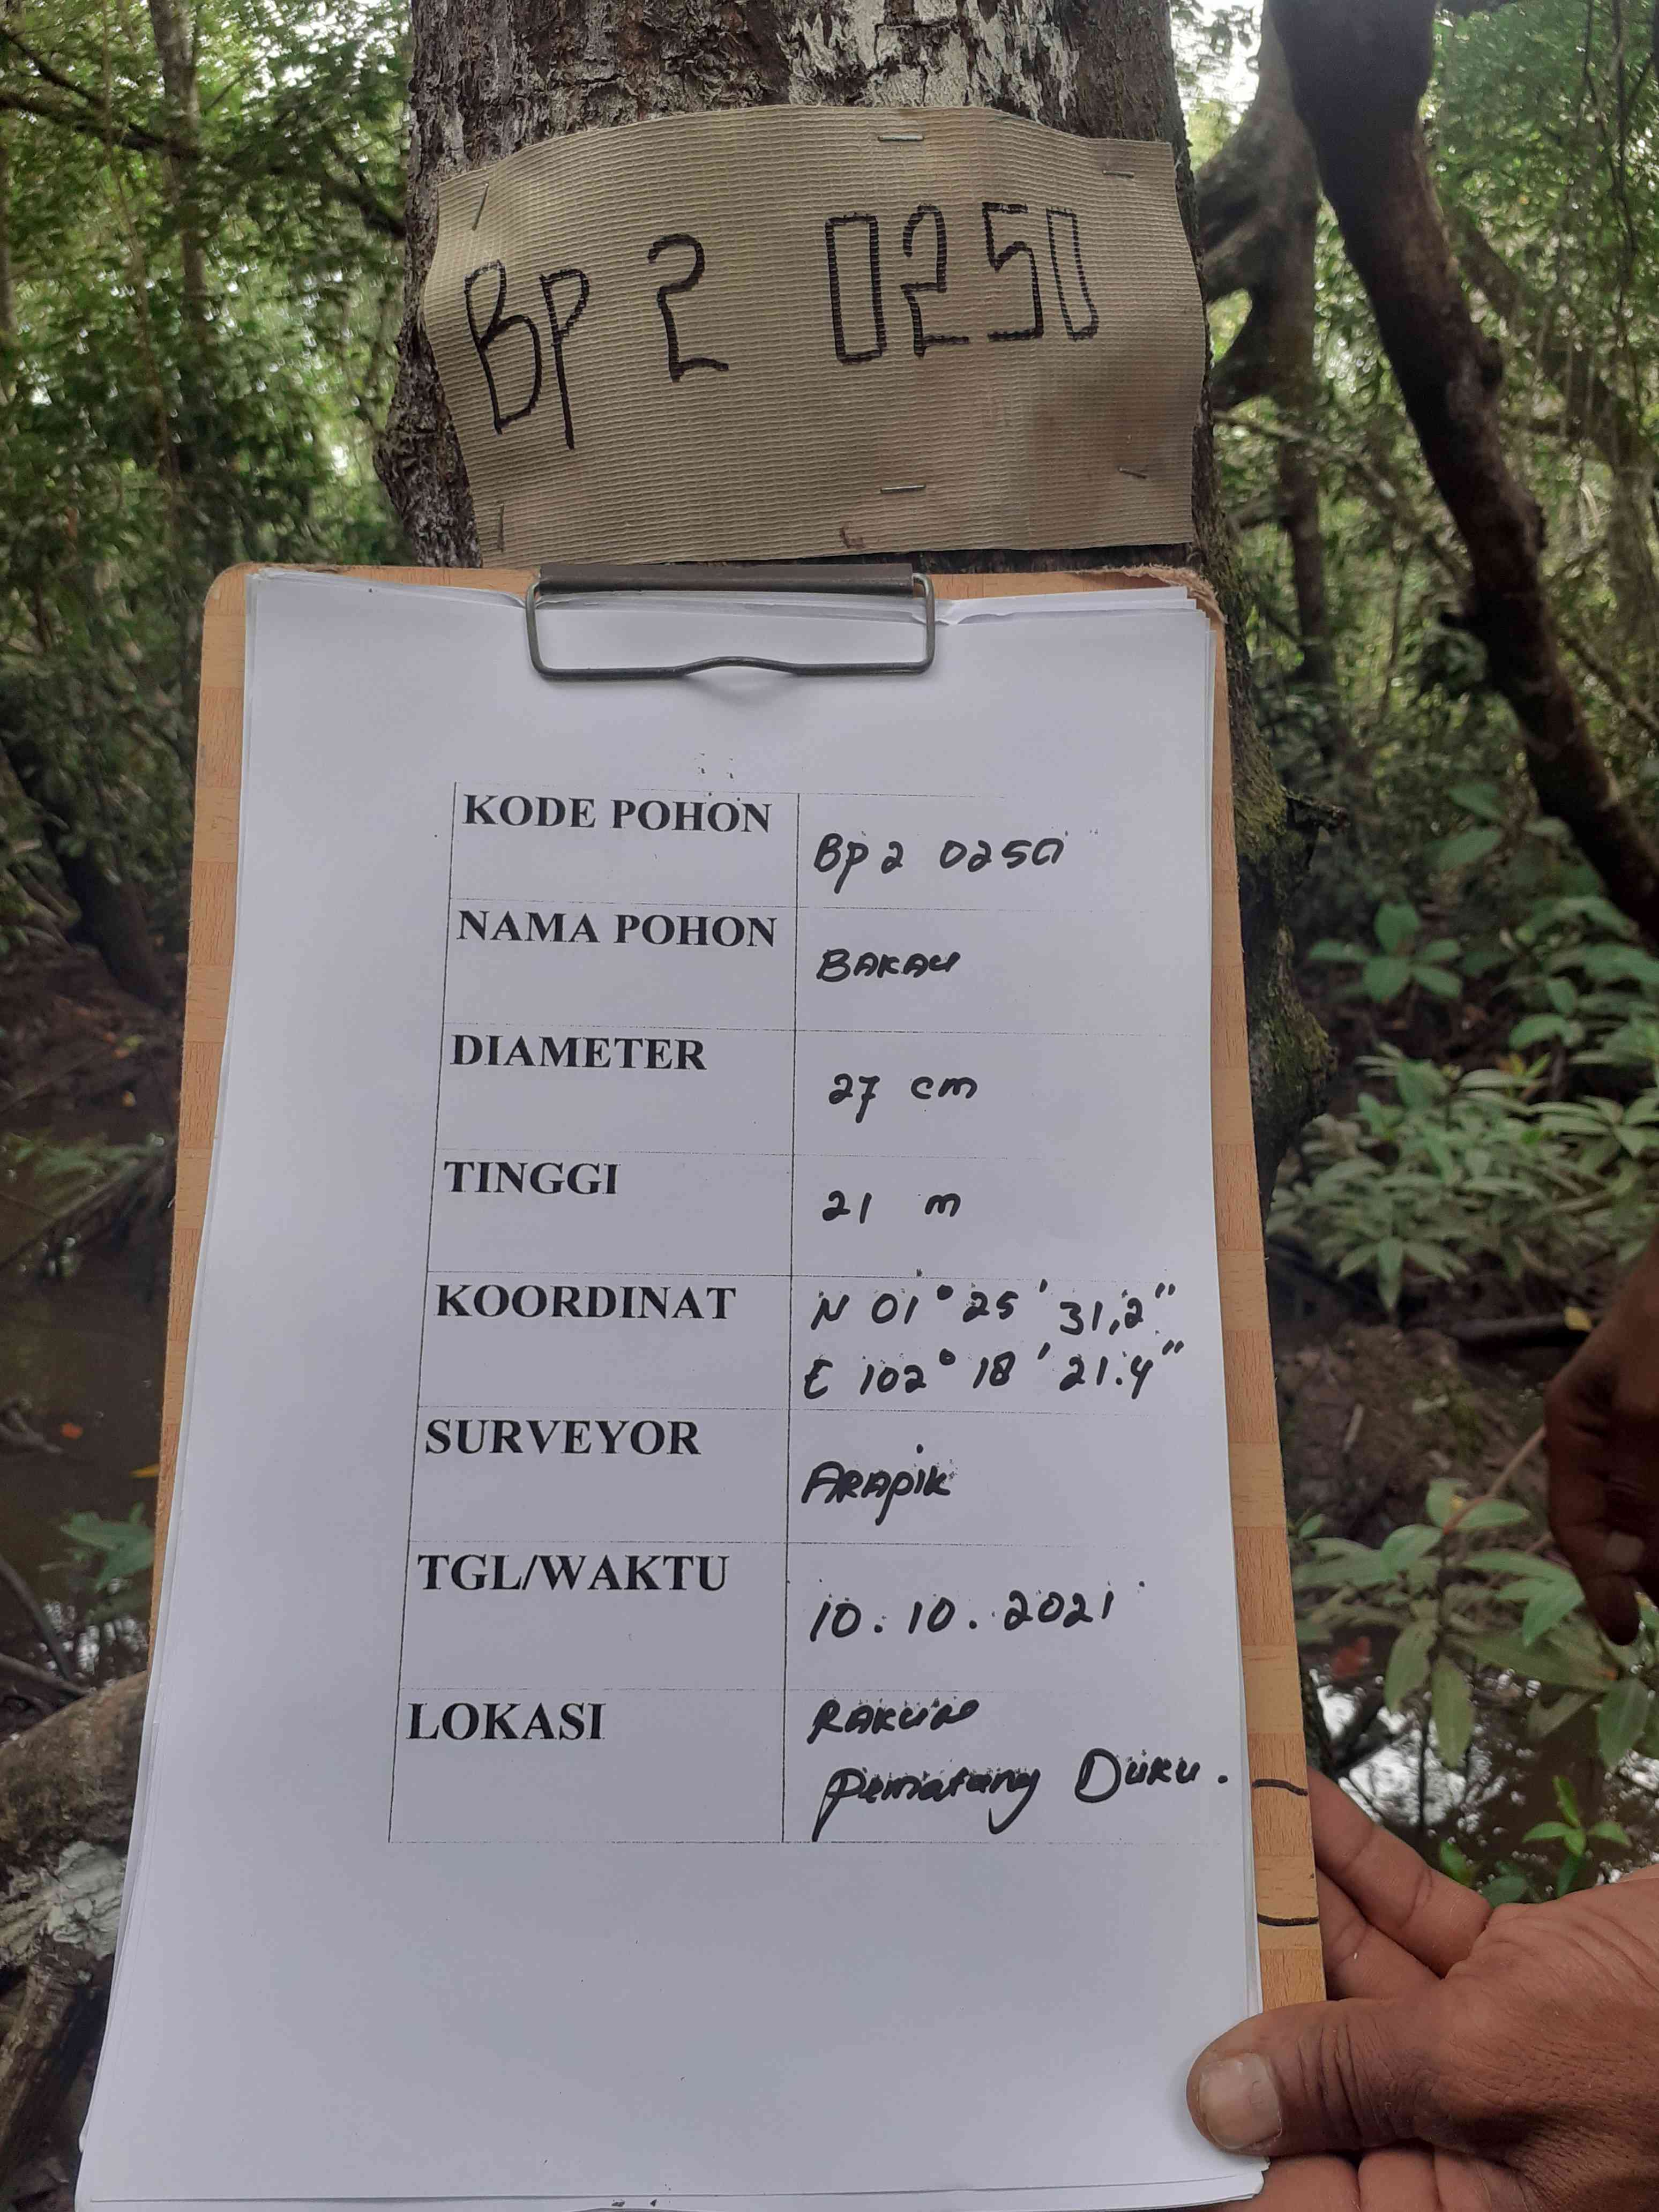 BP 2 0250
KODE POHON Bp 2 0250
NAMA POHON BAKAU
DIAMETER 27 cm
TINGGI 21 m
KOORDINAT N 01° 25' 31,2"
E 102° 18' 21.4"
SURVEYOR ARApik
TGL/WAKTU 10.10.2021
LOKASI
Pematang Duku.